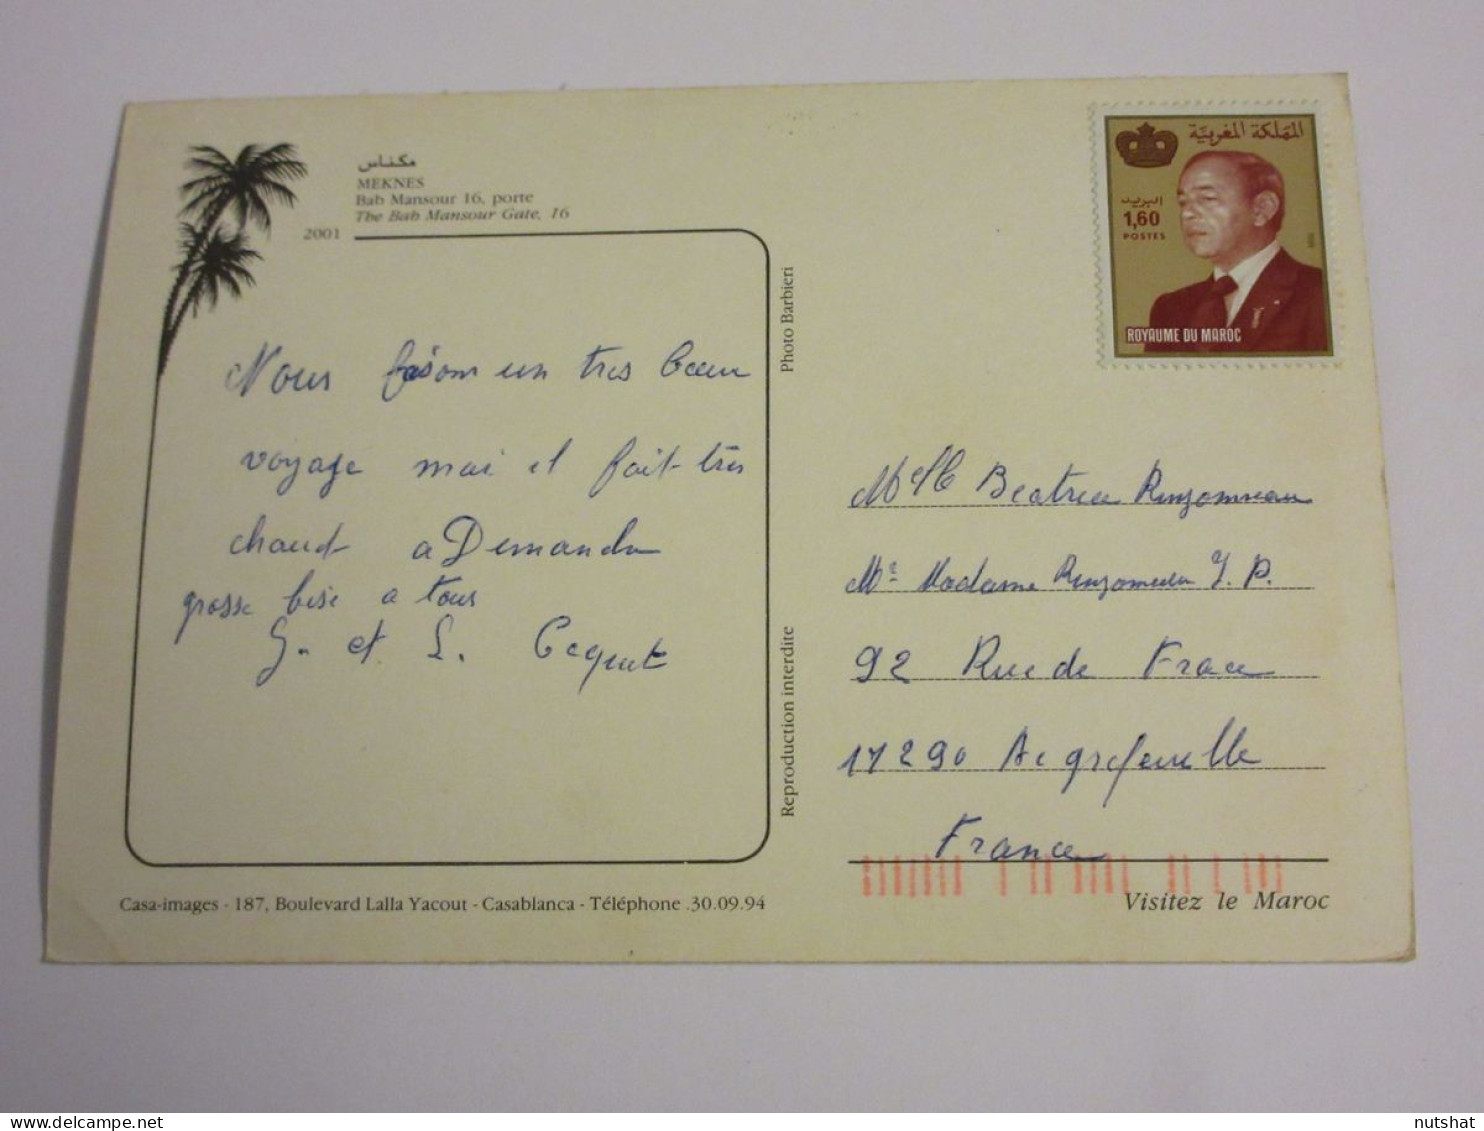 مكناس
MEKNES
Bab Mansour 16, porte
The Bab Mansour Gate, 16
2001
Nous un tres beau
voyage mai il fait très
chaud a Demandu
grosse bise a tous
G. et L.
Photo Barbieri
Reproduction interdite
المملكة المغربية
البريد
1,60
POSTES
ROYAUME DU MAROC
Melle Beatrice
Mr Madame J. P.
92 Rue de France
17290 Aigrefeuille
France
Casa-images - 187, Boulevard Lalla Yacout - Casablanca - Téléphone .30.09.94
Visitez le Maroc
nutshat